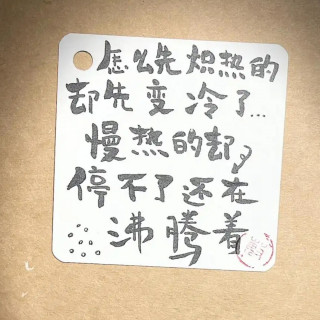 怎么先炽热的
却先变冷了...
慢热的却
停不了还在
沸腾着